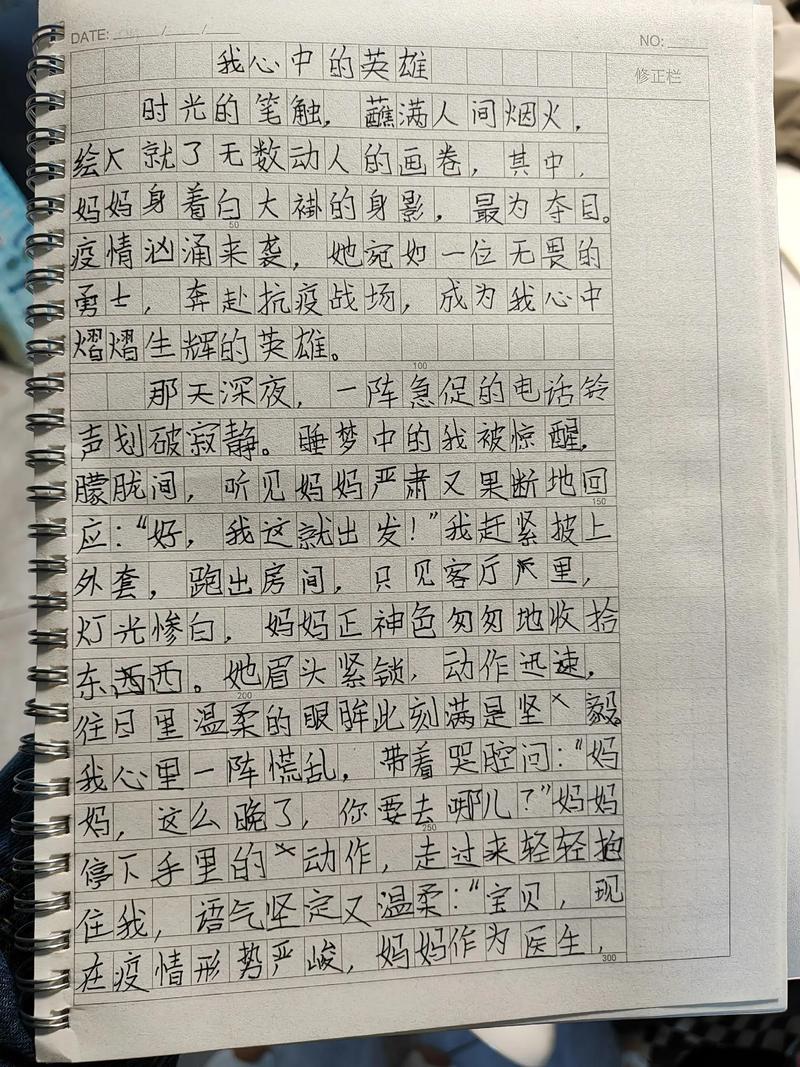 DATE: / /
NO:
修正栏
我心中的英雄
时光的笔触，蘸满人间烟火，
绘就了无数动人的画卷，其中，
妈妈身着白大褂的身影，最为夺目。
50
疫情汹涌来袭，她宛如一位无畏的
勇士，奔赴抗疫战场，成为我心中
熠熠生辉的英雄。
100
那天深夜，一阵急促的电话铃
声划破寂静。睡梦中的我被惊醒，
朦胧间，听见妈妈严肃又果断地回
150
应：“好，我这就出发！”我赶紧披上
外套，跑出房间，只见客厅里，
灯光惨白，妈妈正神色匆匆地收拾
东西西。她眉头紧锁，动作迅速，
200
往日里温柔的眼眸此刻满是坚毅。
我心里一阵慌乱，带着哭腔问：“妈
妈，这么晚了，你要去哪儿？”妈妈
250
停下手里的动作，走过来轻轻抱
住我，语气坚定又温柔：“宝贝，现
在疫情形势严峻，妈妈作为医生，
300